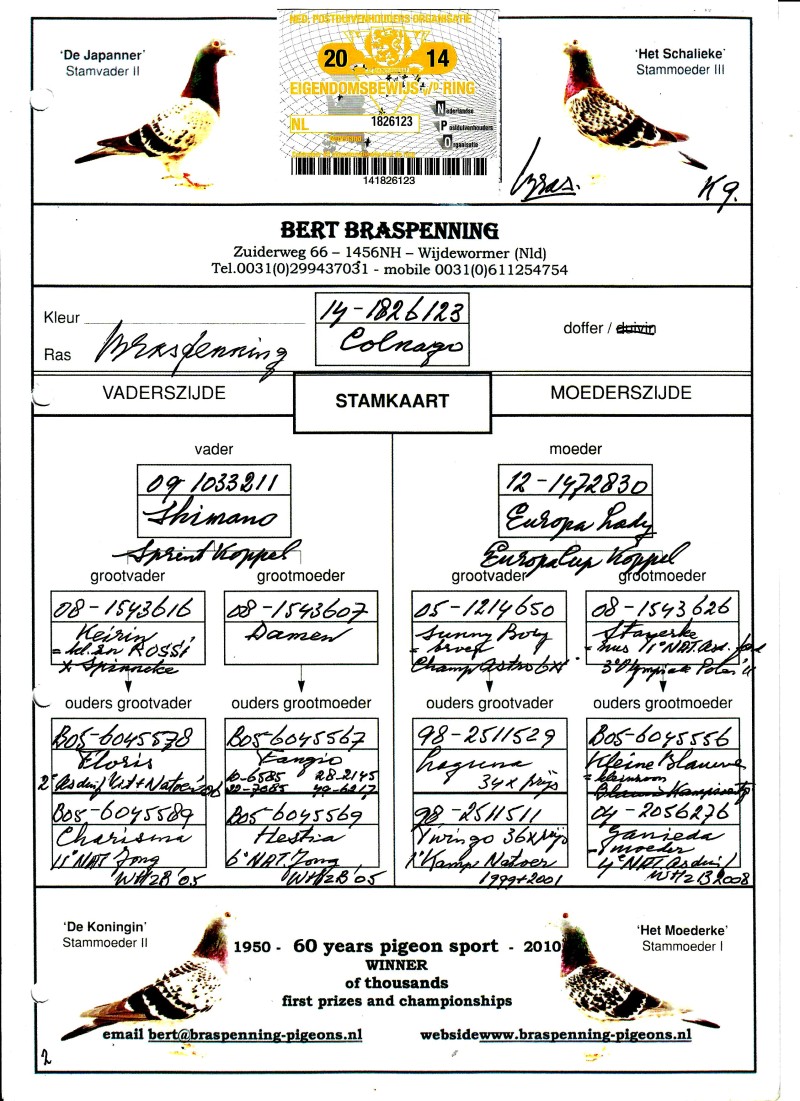 'De Japanner'
Stamvader II
NED. POSTDUIVENHOUDERS ORGANISATIE
20 14
EIGENDOMSBEWIJS v/d RING
NL 1826123
Nederlandse
Postduivenhouders
Organisatie
141826123
'Het Schalieke'
Stammoeder III
Bras.
K9.
BERT BRASPENNING
Zuiderweg 66 – 1456NH – Wijdewormer (Nld)
Tel.0031(0)299437031 - mobile 0031(0)611254754
Kleur
Ras Braspenning
14-1826123
Colnago
doffer / duivin
VADERSZIJDE
STAMKAART
MOEDERSZIJDE
vader
09-1033211
Shimano
Sprint Koppel
moeder
12-1472830
Europa Lady
EuropaCup Koppel
grootvader
08-1543616
Keirin
= kl.zn ROSSI
x Spinneke
grootmoeder
08-1543607
Damen
grootvader
05-1214650
Sunny Boy
= broer
Champ Astro 6x
grootmoeder
08-1543626
Stayerke
= zus 1e NAT. Asd.
3e Olympiade Polen
ouders grootvader
B05-6045578
Floris
2e Asduif Vit + Natoer '06
B05-6045589
Charisma
11e NAT. Jong
WHZB '05
ouders grootmoeder
B05-6045567
Fangio
10-6585 28-2145
22-7085 49-6217
B05-6045569
Hestia
6e NAT. Jong
WHZB '05
ouders grootvader
98-2511529
Laguna
34x prijs
98-2511511
Twingo 36x prijs
1e Kamp Natoer
1999+2001
ouders grootmoeder
B05-6045556
Kleine Blauwe
= kleinzoon
04-2056276
Ganieda
= moeder
4e NAT. Asduif
WHZB 2008
'De Koningin'
Stammoeder II
1950 - 60 years pigeon sport - 2010
WINNER
of thousands
first prizes and championships
'Het Moederke'
Stammoeder I
email bert@braspenning-pigeons.nl
webside www.braspenning-pigeons.nl
2